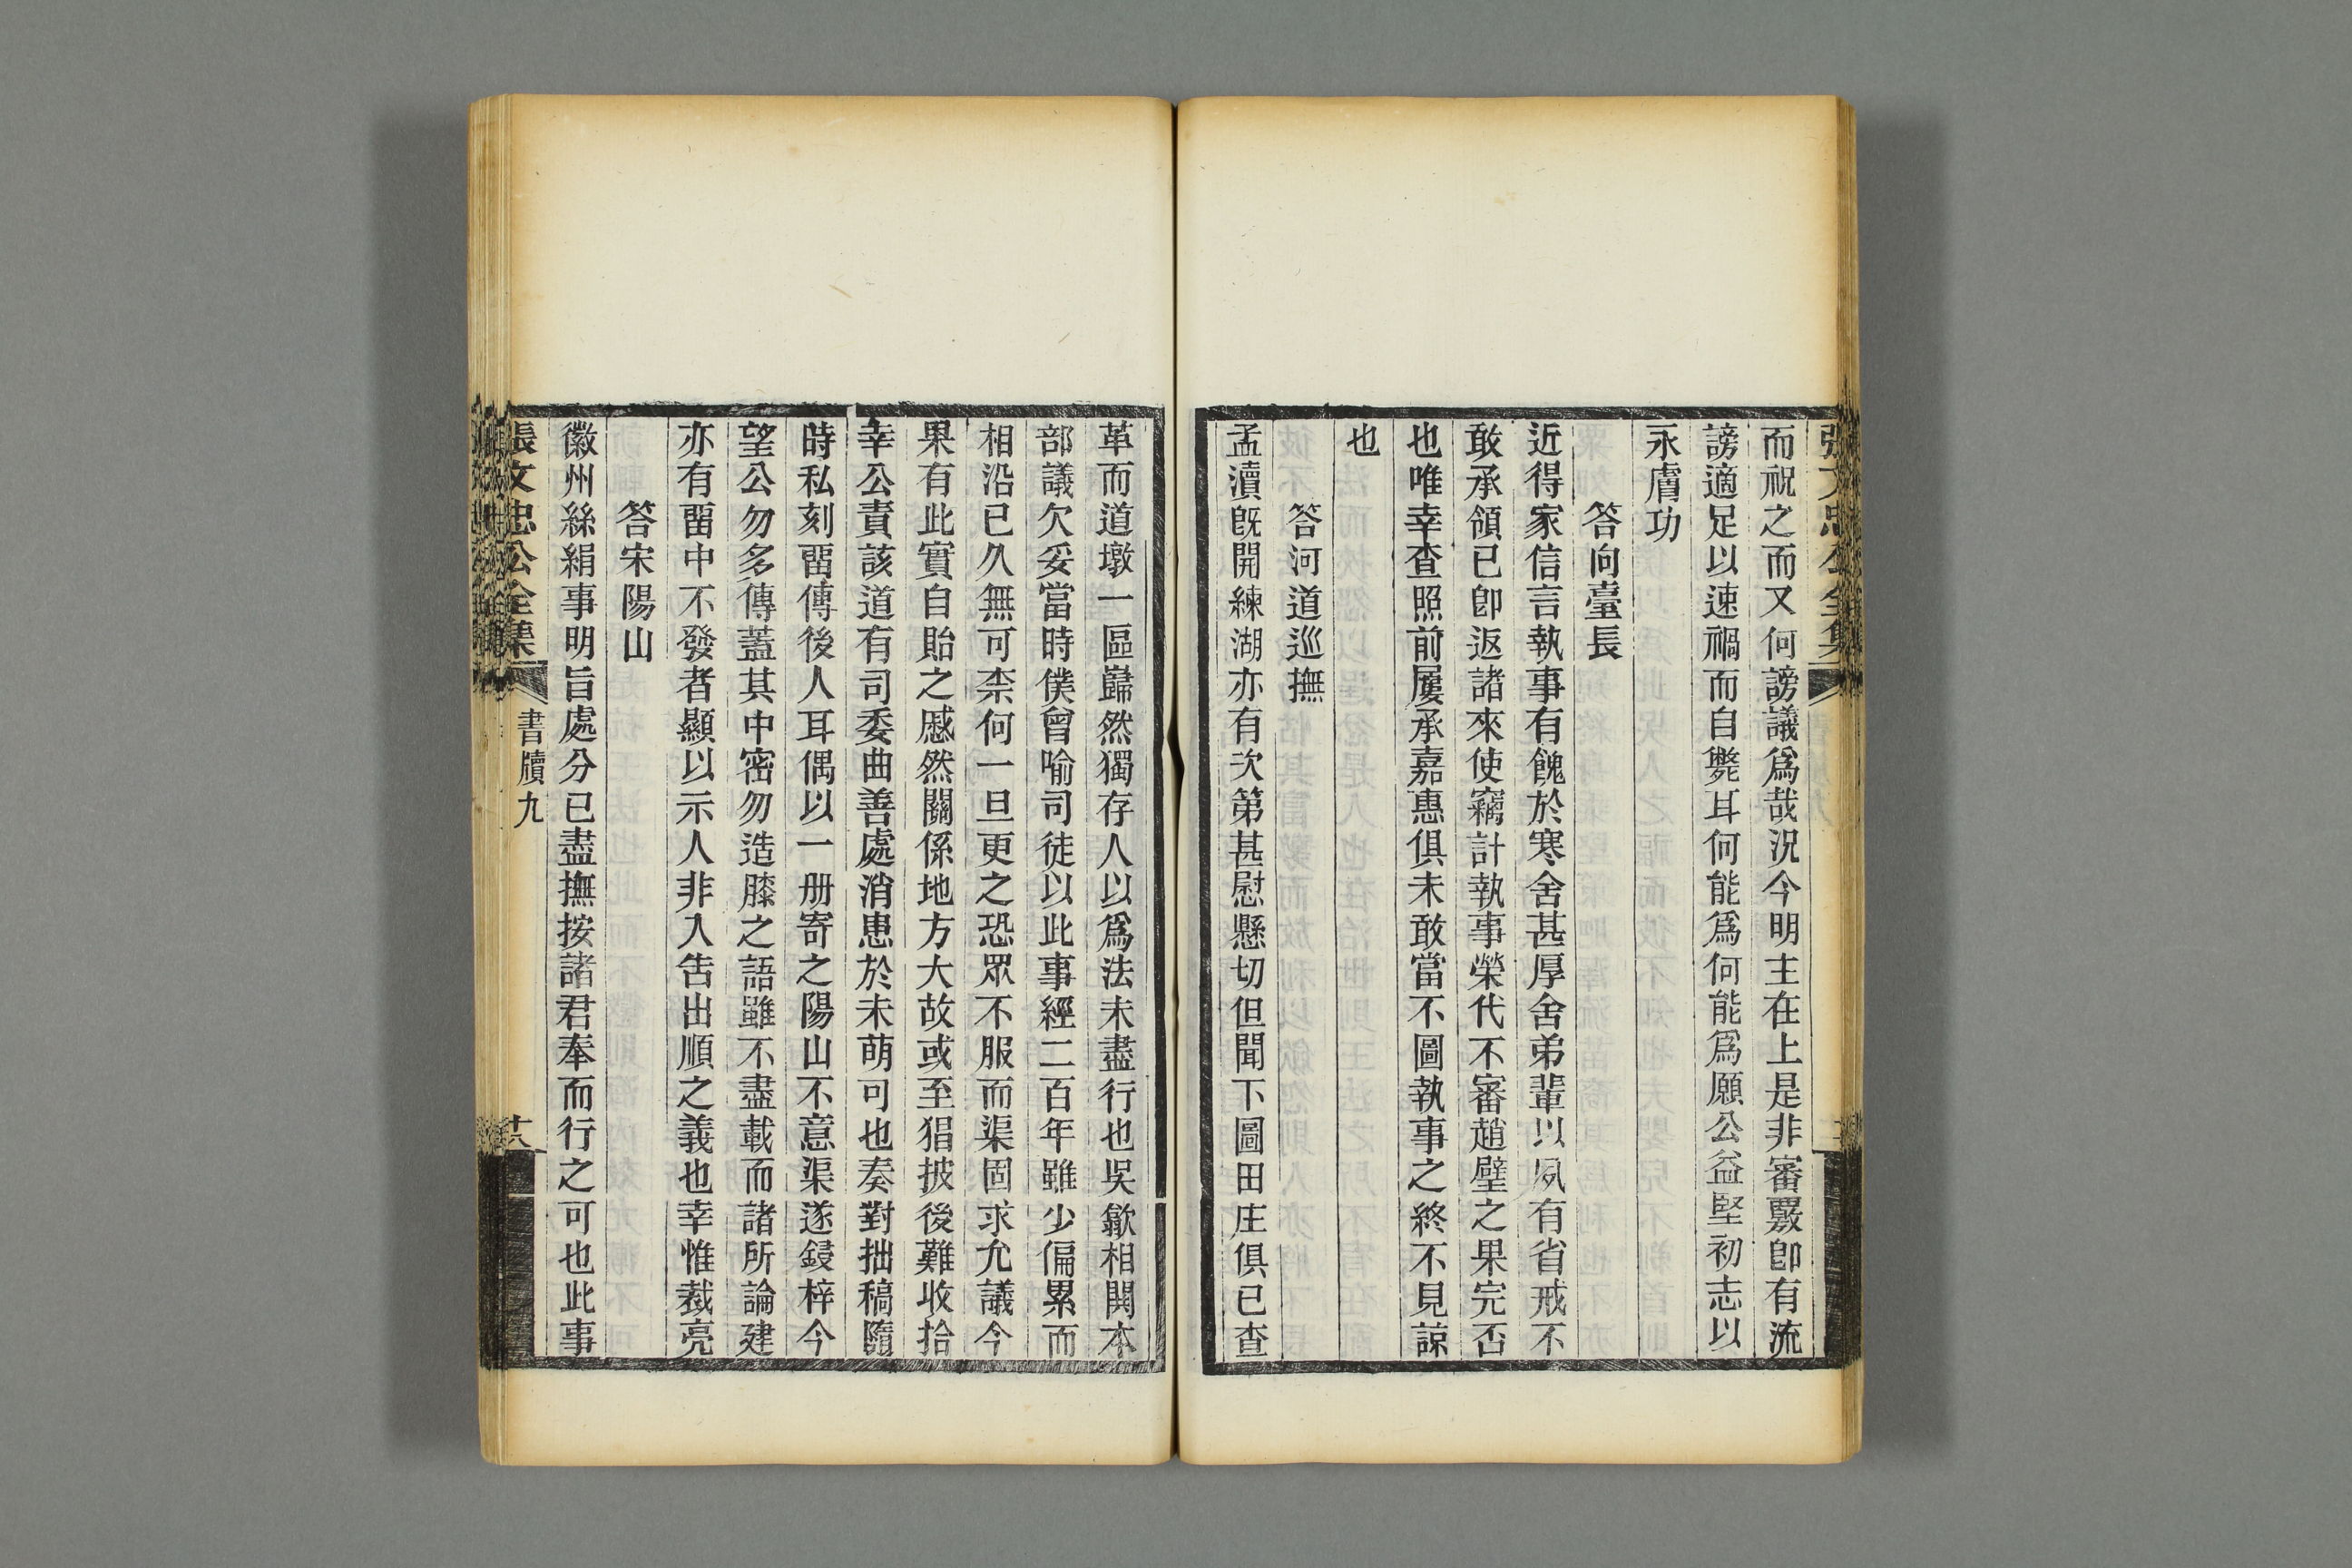 張文忠公全集
而祝之而又何謗議爲哉況今明主在上是非審覈卽有流
謗適足以速禍而自斃耳何能爲何能爲願公益堅初志以
永膚功
答向臺長
近得家信言執事有餽於寒舍甚厚舍弟輩以夙有省戒不
敢承領已卽返諸來使竊計執事榮代不審趙璧之果完否
也唯幸查照前屢承嘉惠俱未敢當不圖執事之終不見諒
也
答河道巡撫
孟瀆旣開練湖亦有次第甚慰懸切但聞下圖田庄俱已查
革而道墩一區巋然獨存人以爲法未盡行也吳歙相閧本
部議欠妥當時僕曾喻司徒以此事經二百年雖少偏累而
相沿已久無可柰何一旦更之恐眾不服而渠固求允議今
果有此實自貽之慼然關係地方大故或至猖披後難收拾
幸公責該道有司委曲善處消患於未萌可也奏對拙稿隨
時私刻畱傳後人耳偶以一册寄之陽山不意渠遂鋟梓今
望公勿多傳蓋其中密勿造膝之語雖不盡載而諸所論建
亦有畱中不發者顯以示人非入告出順之義也幸惟裁亮
答宋陽山
徽州絲絹事明旨處分已盡撫按諸君奉而行之可也此事
張文忠公全集
書牘九
十六